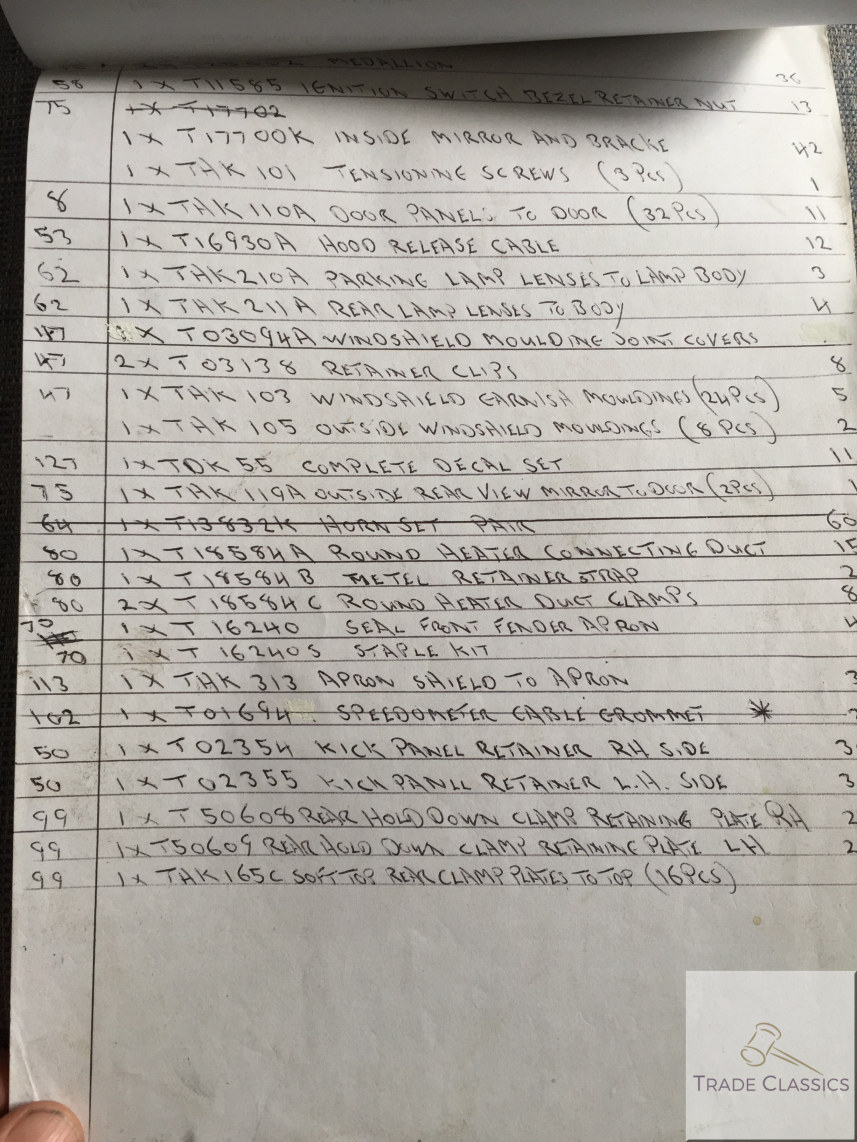 MEDALLION
58 1 X T11585 IGNITION SWITCH BEZEL RETAINER NUT 36
75 1X T17702 13
1 X T17700K INSIDE MIRROR AND BRACKE 42
1 X TAK 101 TENSIONING SCREWS (3 PCS) 1
8 1 X TAK 110A DOOR PANELS TO DOOR (32 PCS) 11
53 1 X T16930A HOOD RELEASE CABLE 12
62 1 X TAK 210A PARKING LAMP LENSES TO LAMP BODY 3
62 1 X TAK 211A REAR LAMP LENSES TO BODY 4
47 X T03094A WINDSHIELD MOULDING JOINT COVERS
47 2 X T 03138 RETAINER CLIPS 8
47 1 X TAK 103 WINDSHIELD GARNISH MOULDINGS (24 PCS) 5
1 X TAK 105 OUTSIDE WINDSHIELD MOULDINGS (8 PCS) 2
127 1X TDK 55 COMPLETE DECAL SET 11
75 1 X TAK 119A OUTSIDE REAR VIEW MIRROR TO DOOR (2PCS) 1
64 1 X T13832K HORN SET PAIR 60
80 1 X T18584A ROUND HEATER CONNECTING DUCT 15
80 1 X T18584B METEL RETAINER STRAP 2
80 2 X T 18584 C ROUND HEATER DUCT CLAMPS 8
70 1 X T 16240 SEAL FRONT FENDER APRON 4
70 1 X T 16240S STAPLE KIT
113 1 X TAK 313 APRON SHIELD TO APRON 3
102 1 X T01694 SPEEDOMETER CABLE GROMMET *
50 1 X T 02354 KICK PANEL RETAINER RH SIDE 3
50 1 X T 02355 KICK PANEL RETAINER L.H. SIDE 3
99 1 X T 50608 REAR HOLD DOWN CLAMP RETAINING PLATE RH 2
99 1X T50609 REAR HOLD DOWN CLAMP RETAINING PLATE LH 2
99 1X TAK 165C SOFT TOP REAR CLAMP PLATES TO TOP (16 PCS)
TRADE CLASSICS